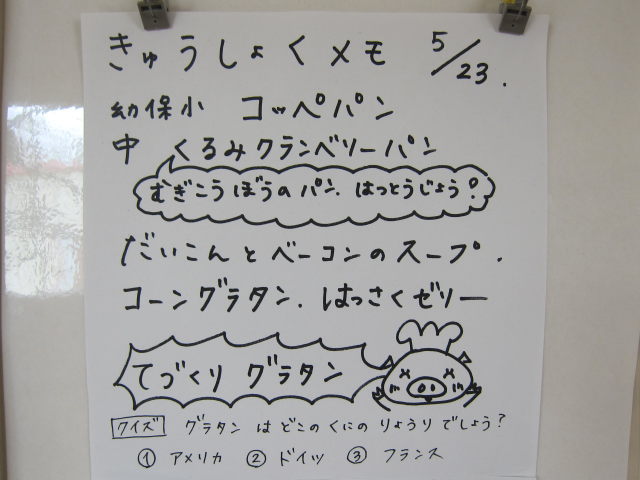 きゅうしょくメモ 5/23.
幼保小 コッペパン
中 くるみクランベリーパン
むぎこうぼうのパン. はっとうじょう!
だいこんとベーコンのスープ.
コーングラタン. はっさくゼリー
てづくり グラタン
クイズ グラタン は どこの くにの りょうり でしょう?
① アメリカ ② ドイツ ③ フランス